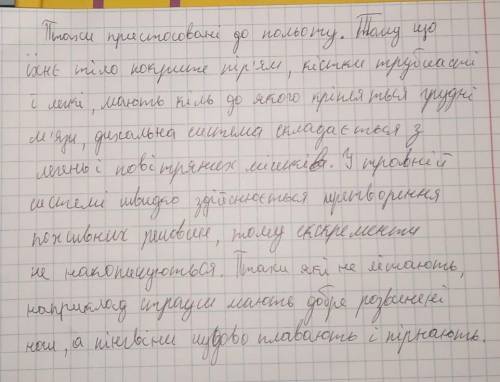 Птахи пристосовані до польоту. Тому що
їхнє тіло покрите пір'ям, кістки трубчасті
і легкі, мають кіль до якого кріпляться грудні
м'язи, дихальна система складається з
легень і повітряних мішків. У травній
системі швидко здійснюється перетворення
поживних речовин, тому екскременти
не накопичуються. Птахи які не літають,
наприклад страуси мають добре розвинені
ноги, а пінгвіни чудово плавають і пірнають.